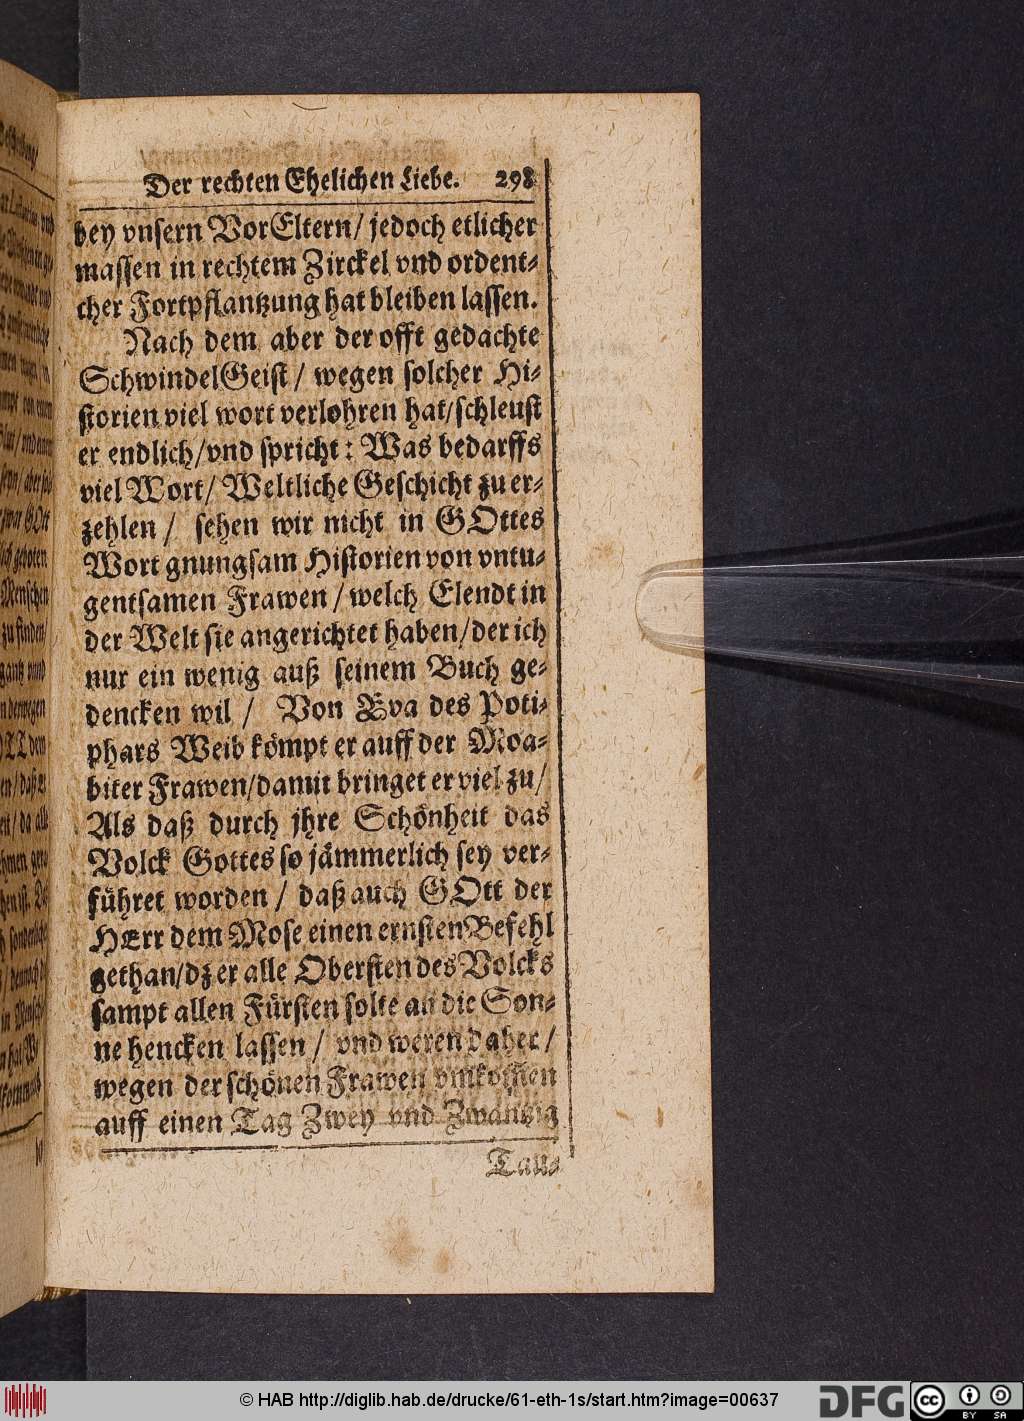 Der rechten Ehelichen Liebe. 298
bey vnsern VorEltern/ jedoch etlicher
massen in rechtem Zirckel vnd ordent-
cher Fortpflantzung hat bleiben lassen.
Nach dem aber der offt gedachte
SchwindelGeist/ wegen solcher Hi-
storien viel wort verlohren hat/schleust
er endlich/vnd spricht: Was bedarffs
viel Wort/ Weltliche Geschicht zu er-
zehlen/ sehen wir nicht in GOttes
Wort gnungsam Historien von vntu-
gentsamen Frawen/welch Elendt in
der Welt sie angerichtet haben/der ich
nur ein wenig auß seinem Buch ge-
dencken wil/ Von Eva des Poti-
phars Weib kömpt er auff der Moa-
biter Frawen/damit bringet er viel zu/
Als daß durch jhre Schönheit das
Volck Gottes so jämmerlich sey ver-
führet worden/ daß auch GOtt der
HErr dem Mose einen ernsten Befehl
gethan/dz er alle Obersten des Volcks
sampt allen Fürsten solte an die Son-
ne hencken lassen/ vnd weren daher/
wegen der schönen Frawen vmkommen
auff einen Tag Zwey vnd Zwantzig
Tau-
© HAB http://diglib.hab.de/drucke/61-eth-1s/start.htm?image=00637
DFG
cc
BY SA